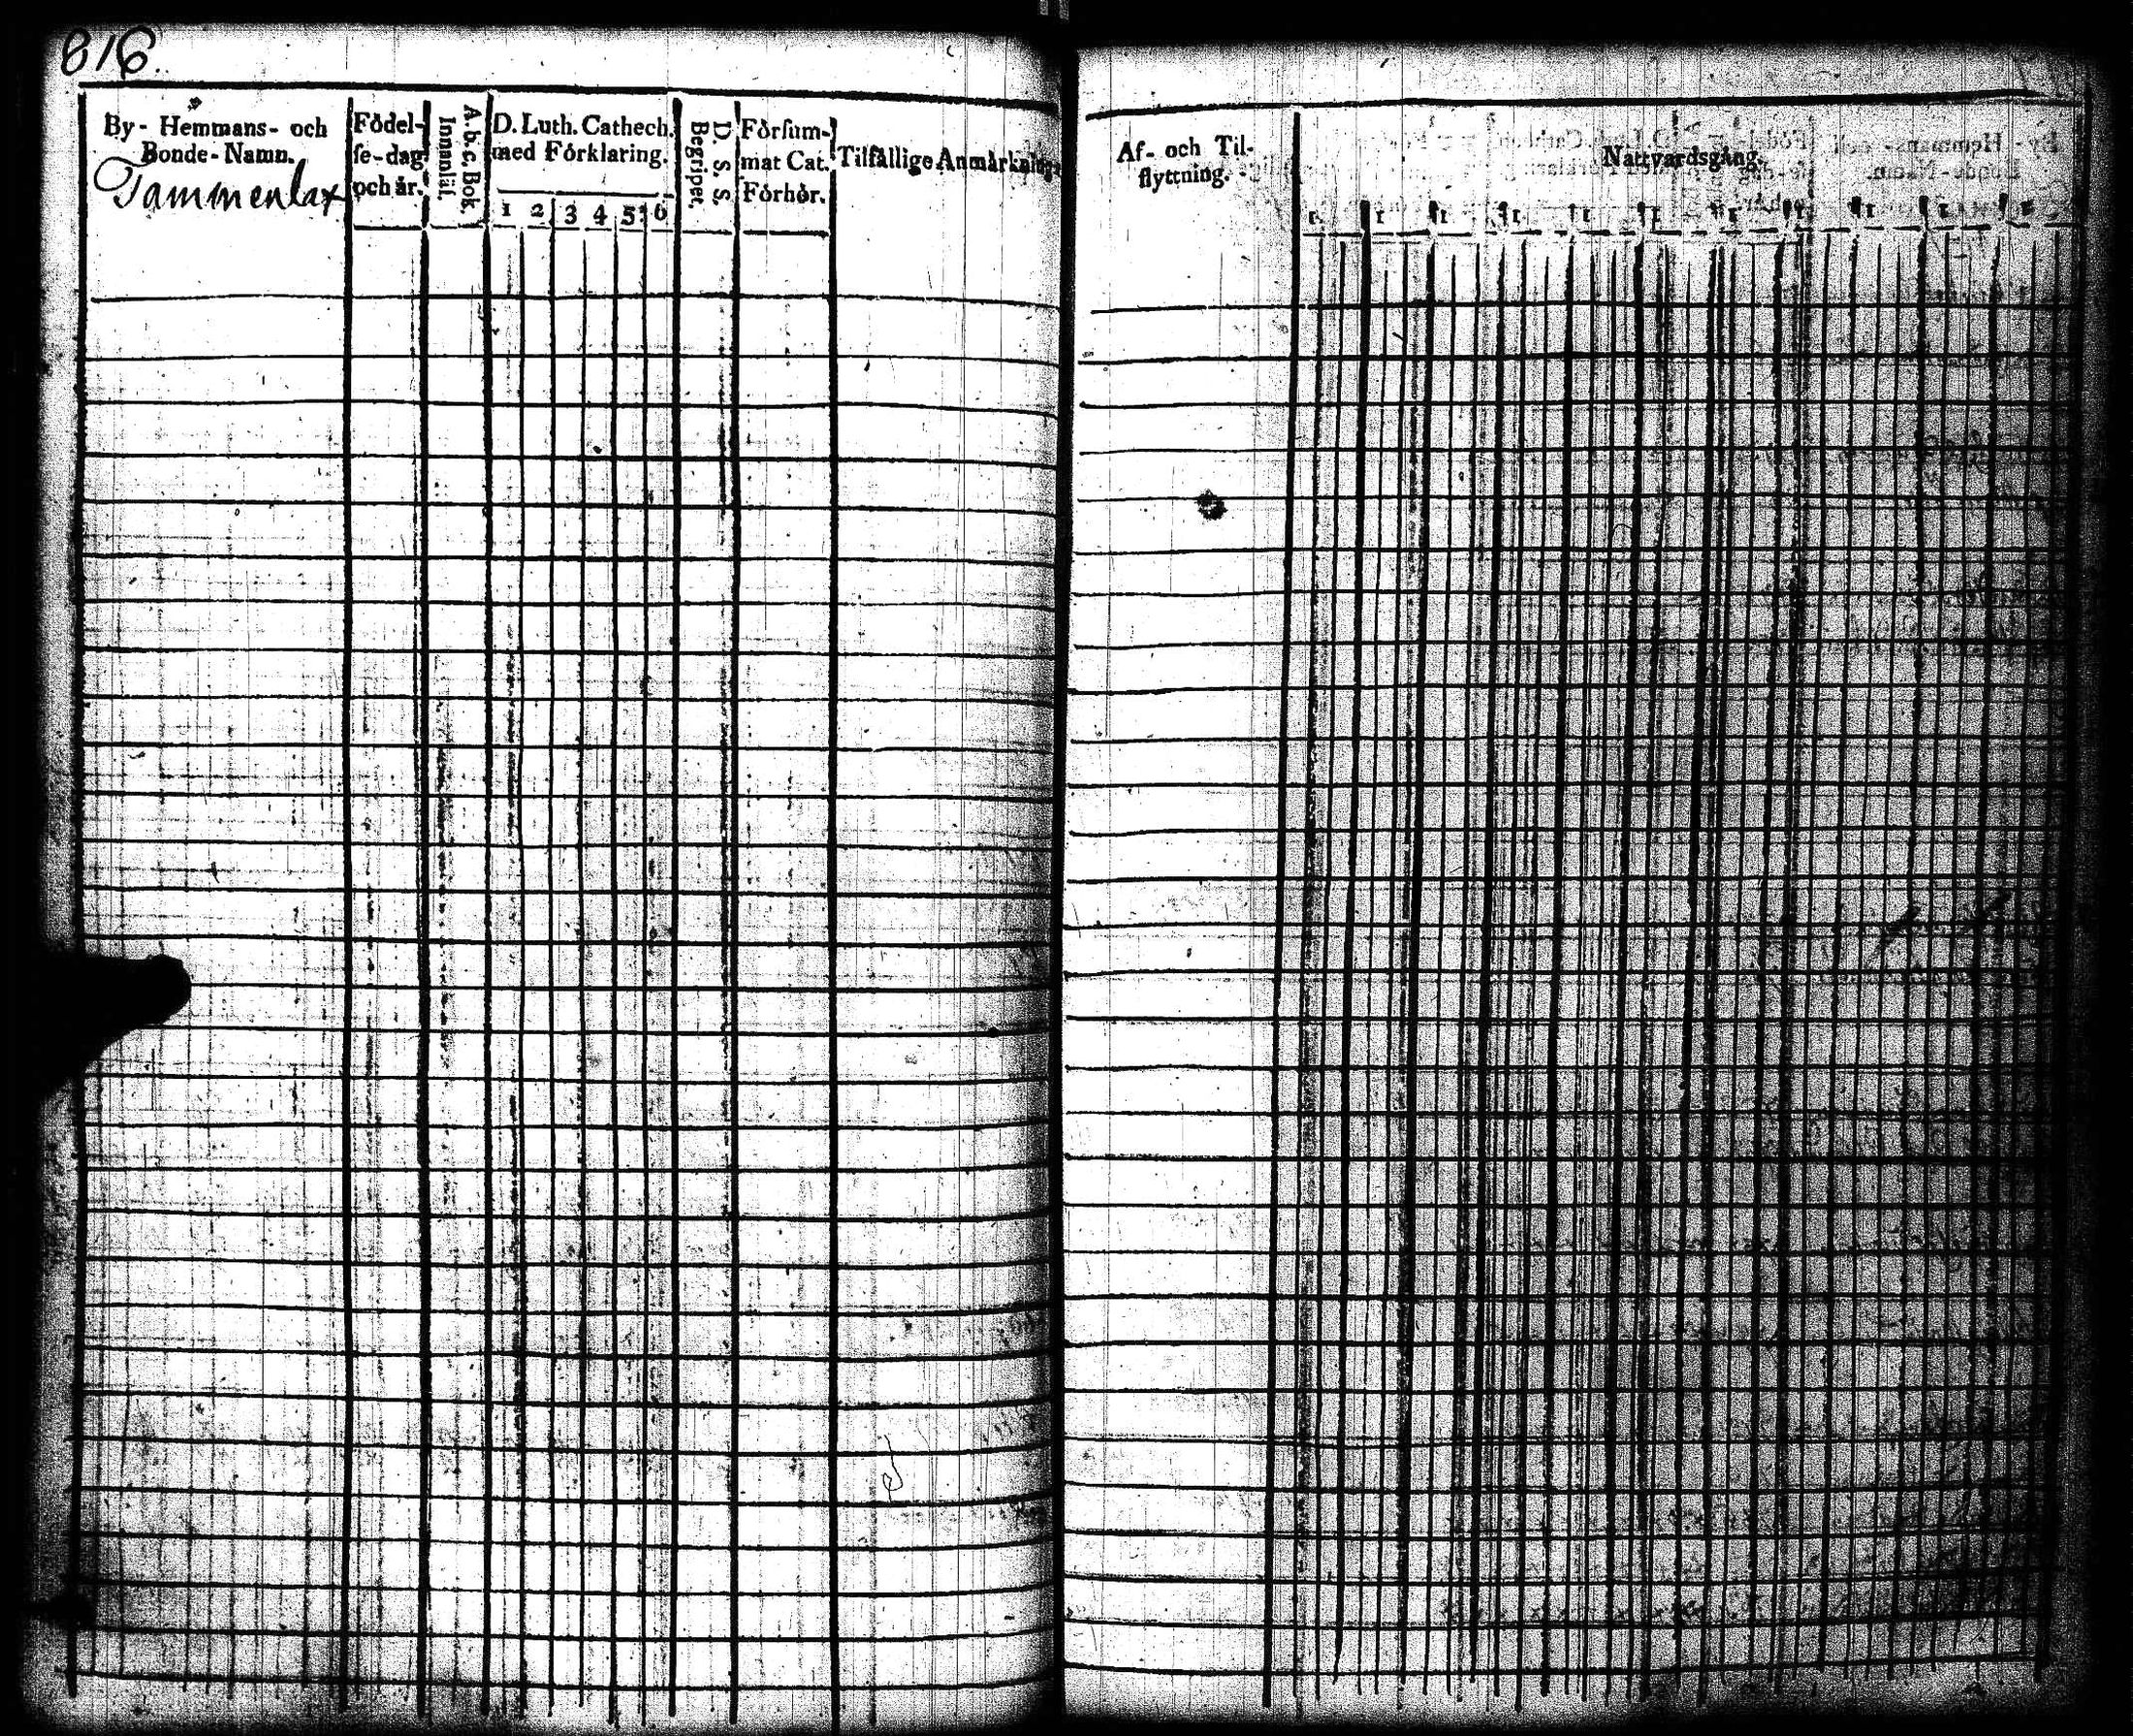 816.
By- Hemmans- och
Bonde-Namn.
Tammenlax
Födel-
se-dag
och år.
A. b. c. Bok.
Innanläs.
D. Luth. Cathech.
med Förklaring.
1 2 3 4 5 6
D. S. S.
Begriper.
Försum-
mat Cat.
Förhör.
Tilfällige Anmärkningar
Af- och Til-
flyttning.
Nattvardsgång.
1 1 1 1 1 1 1 1 1 1